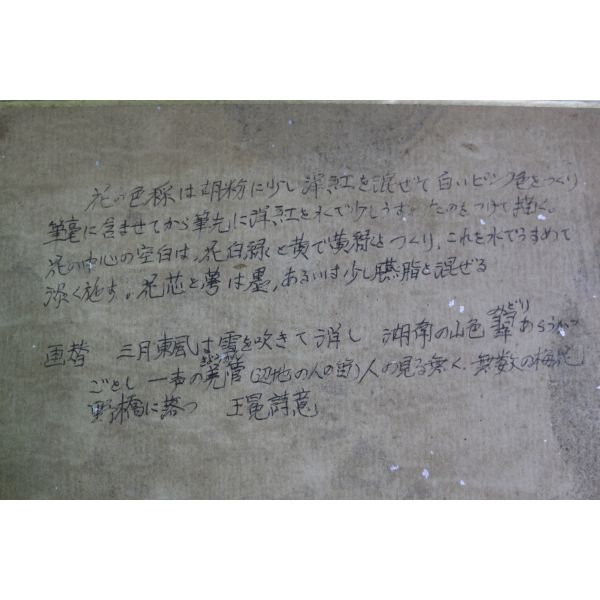 花の色種は胡粉に少し洋紅を混ぜて白いピンク色をつくり
筆毫に含ませてから筆先に洋紅を水で少しうすめたのをつけて描く。
花の中心の空白は、花白緑と黄で黄緑をつくり、これを水でうすめて
淡く施す。花芯と萼は墨、あるいは少し臙脂と混ぜる
画替 三月東風は雪を吹きて消し 湖南の山色翠みどりあらうが
ごとし 一本の羌管きょうかん(辺地の人の笛)人の見る無く、無数の梅花
野橋に落つ 王冕詩意